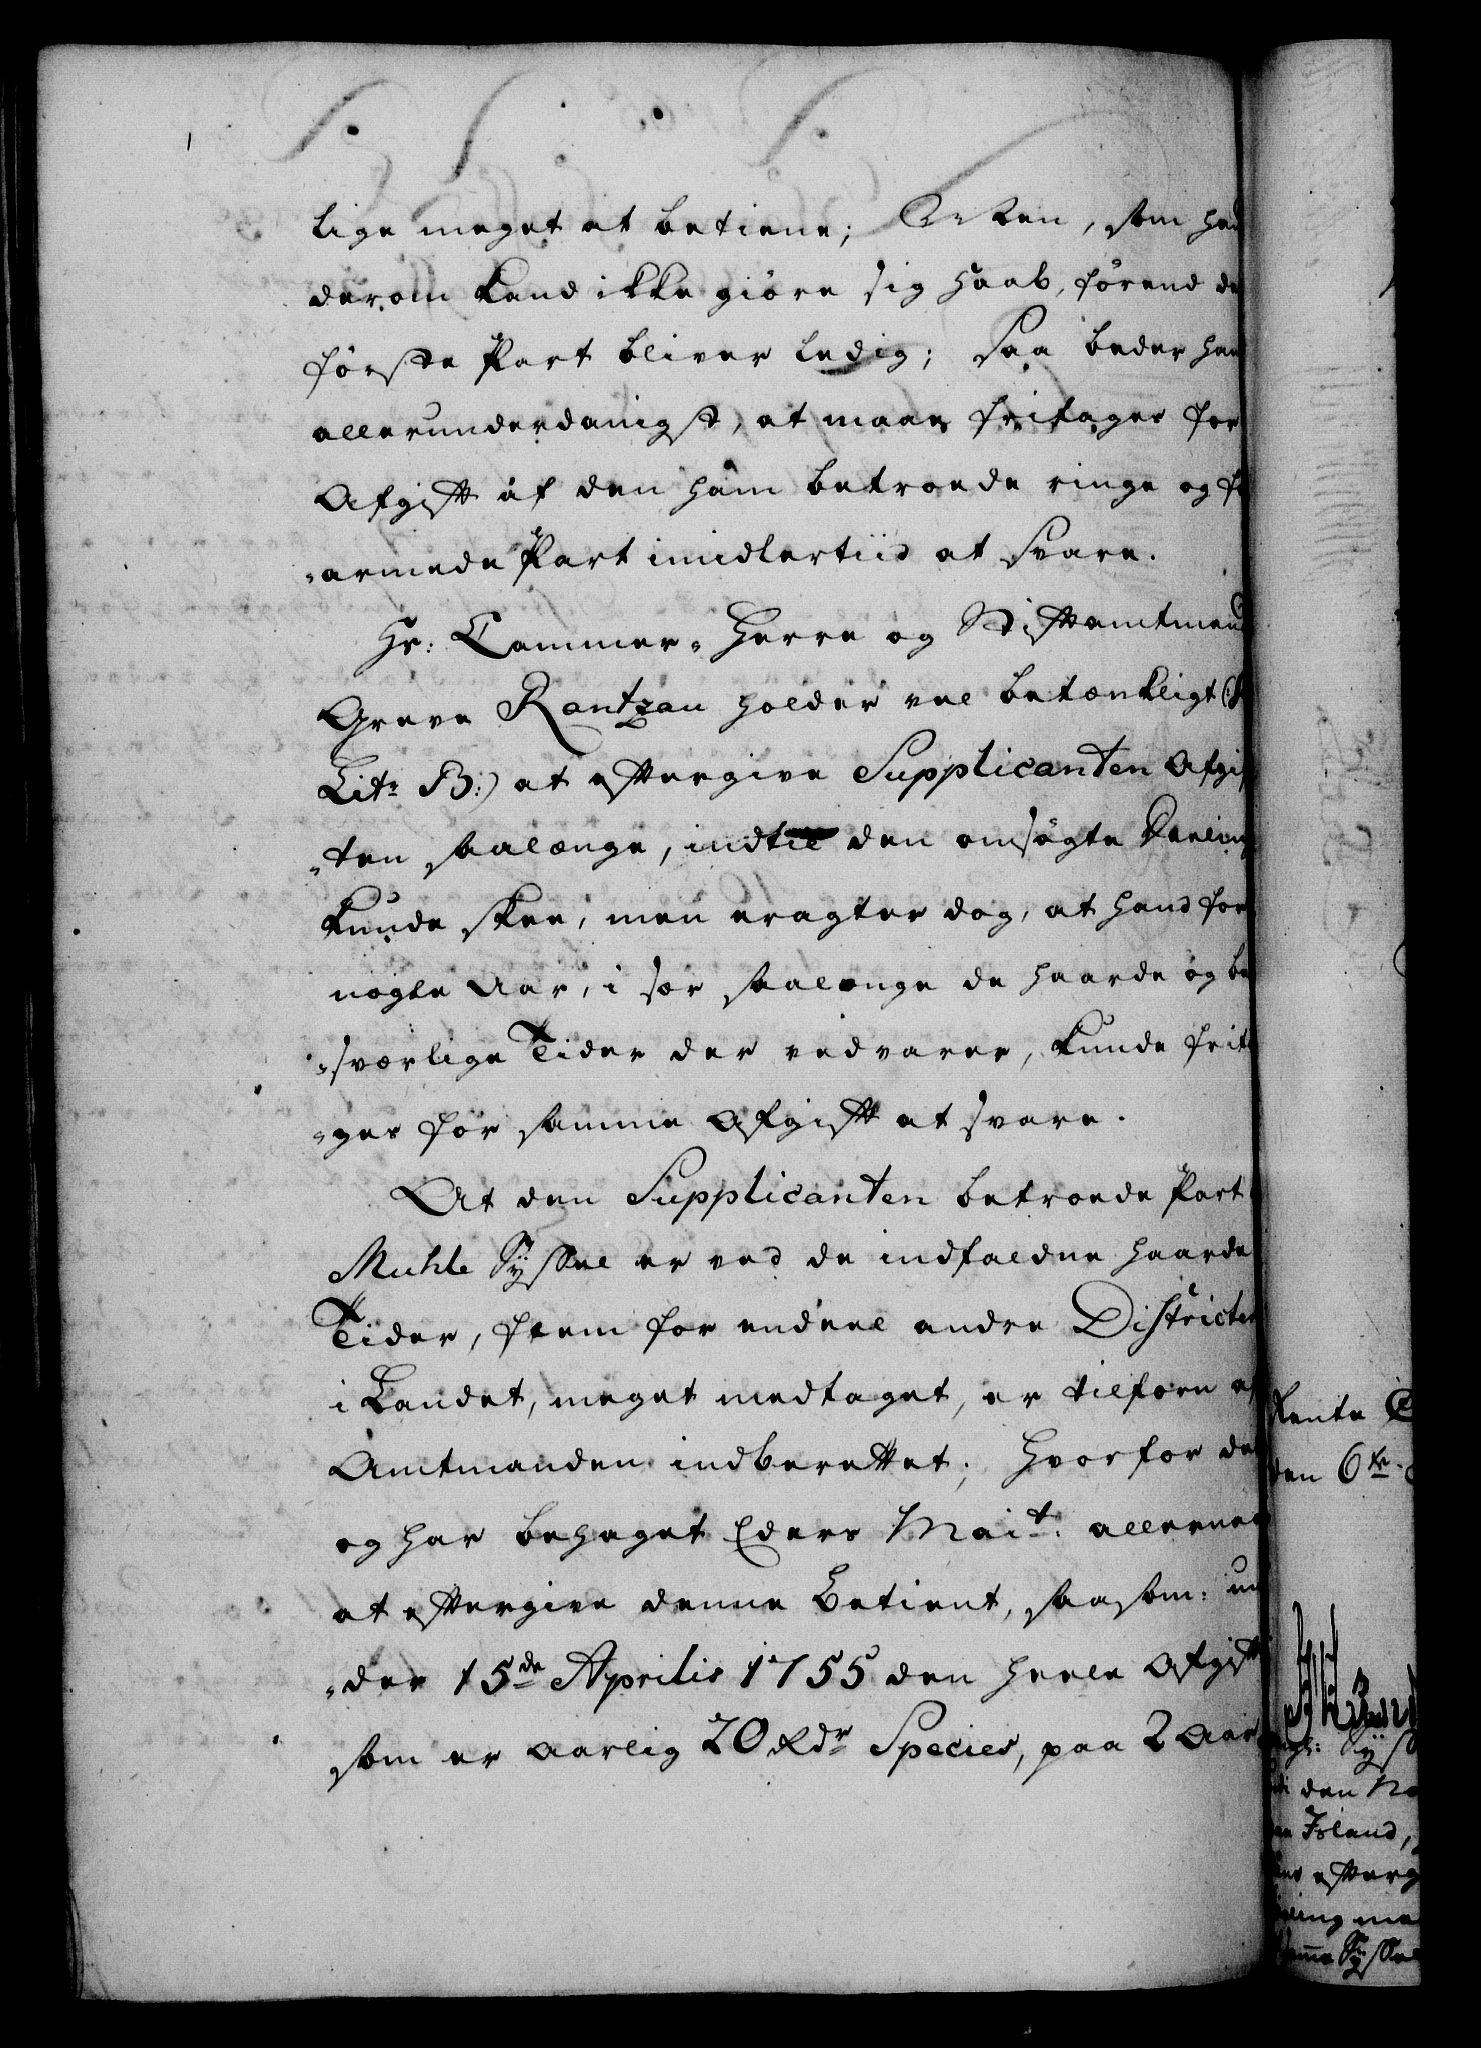 lige meget at betiene; Men, som han
derom kand ikke giöre sig Haab, förend de
förste Part bliver ledig; Saa beder han
allerunderdanigst, at maae fritages for
Afgift af den ham betroede ringe og for
-armede Part imidlertiid at svare.
Hr: Cammer-Herre og Stiftamtmand
Greve Rantzau holder vel betænkligt (:
Litr B:) at eftergive Supplicanten Afgif
-ten saalænge, indtil den ansögte Deeling
kunde skee, men eragter dog, at hand for
nogle Aar, i sær saalænge de haarde og be
-sværlige Tider der vedvarer, kunde frita
-ges for samme Afgift at svare.
At den Supplicanten betroede Part
Muhle Syssel er ved de indfaldne haarde
Tider, frem for endeel andre Districter
i Landet, meget medtaget, er tilforn af
Amtmanden indberettet; Hvorfor det
og har behaget Eders Mait: allernaa
at eftergive denne Betient, saasom: un
-der 15de Aprilis 1755 den heele Afgift
som er aarlig 20 Rdr Species, paa 2 Aar
Rente
den 6te
Syss
den No
Island,
efterg
ling ma
Syssel